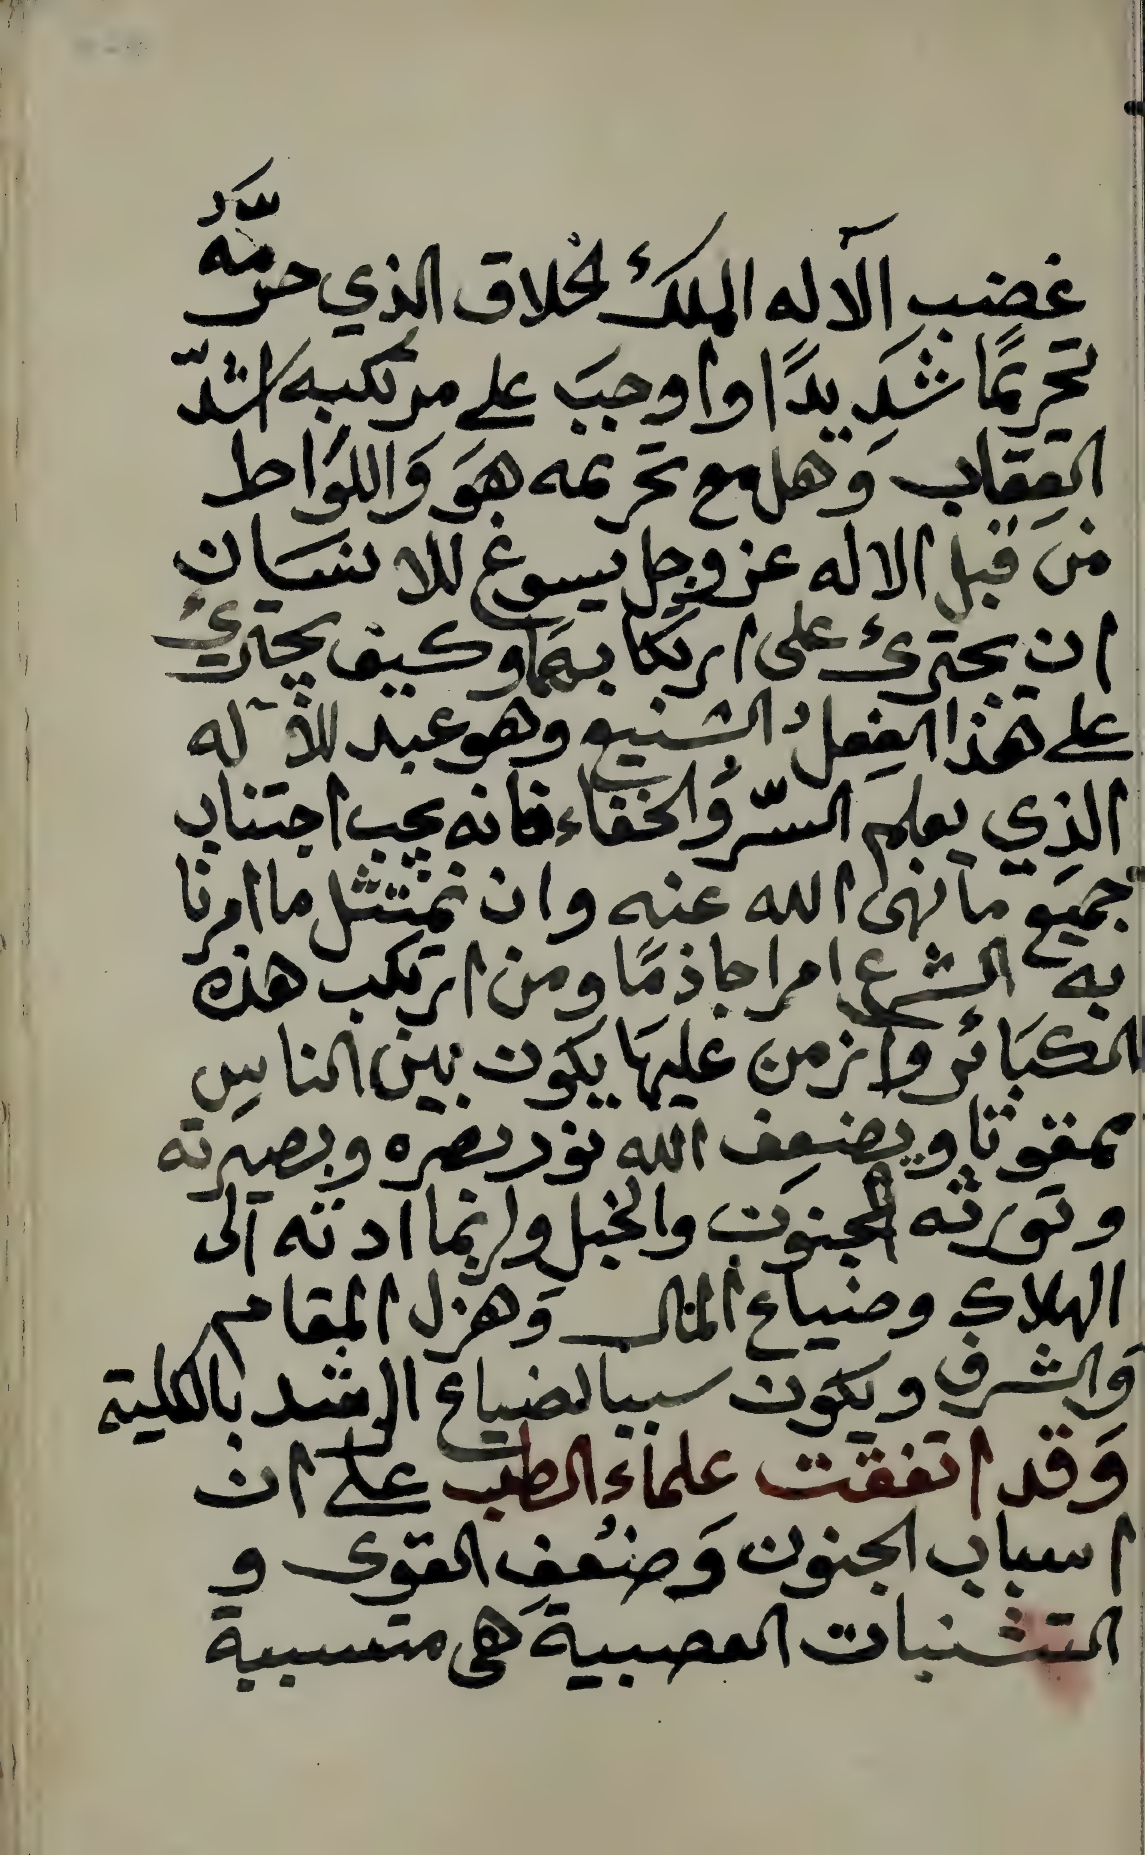 غضب الآله الملك الخلاق الذي حرّمهُ
تحريمًا شَديدًا واوجبَ على مرتكبه اشدّ
العِقاب وَهل مع تحريمه هوَ وَاللوَاط
من قبل الاله عز وجل يسوغ للانسان
ان يجترئ على ارتكابهمَا وكيف يجترئ
على هَذا الفِعلِ الشنيع وهو عبد للآله
الذِي يعلم السّرَّ والخفَاء فانه يجب اجتناب
جميع ما نهى الله عنه وان نمتثل ما امرنا
به الشرع امرا جاذمًا ومن ارتكب هذه
الكبَائر وازمن عليهَا يكون بين الناسِ
ممقوتا ويضعِف الله نور بصره وبصيرته
وتورثه الجنوَن والخبل وربما ادته آلى
الهلاك وضياع المال وَهزل المقام
وَالشرف ويكون سببا لضياع الرشد بالكلية
وَقد اتفقت علماء الطب على ان
اسباب الجنون وَضُعفِ القوى و
التشنبات العصبية هى متسببية